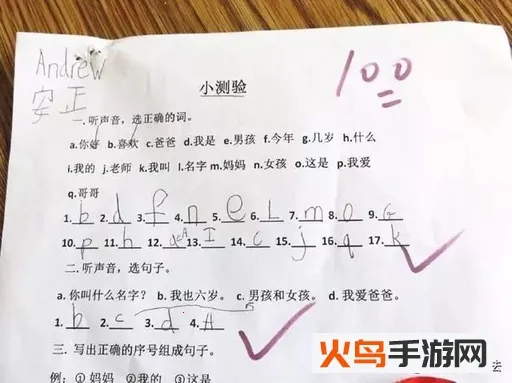 Andrew
安正
100
小测验
一.听声音，选正确的词。
a.你好 b.喜欢 c.爸爸 d.我是 e.男孩 f.今年 g.几岁 h.什么
i.我的 j.老师 k.我叫 l.名字 m.妈妈 n.女孩 o.这是 p.我爱
q.哥哥
1. b 2. d 3. f 4. n 5. e 6. L 7. m 8. o 9. G
10. p 11. h 12. A 13. I 14. c 15. j 16. q 17. k
二.听声音，选句子。
a. 你叫什么名字？ b. 我也六岁。 c. 男孩和女孩。 d. 我爱爸爸。
1. b 2. c 3. d 4. A
三. 写出正确的序号组成句子。
例：①妈妈 ②我的 ③这是
去
火鸟手游网